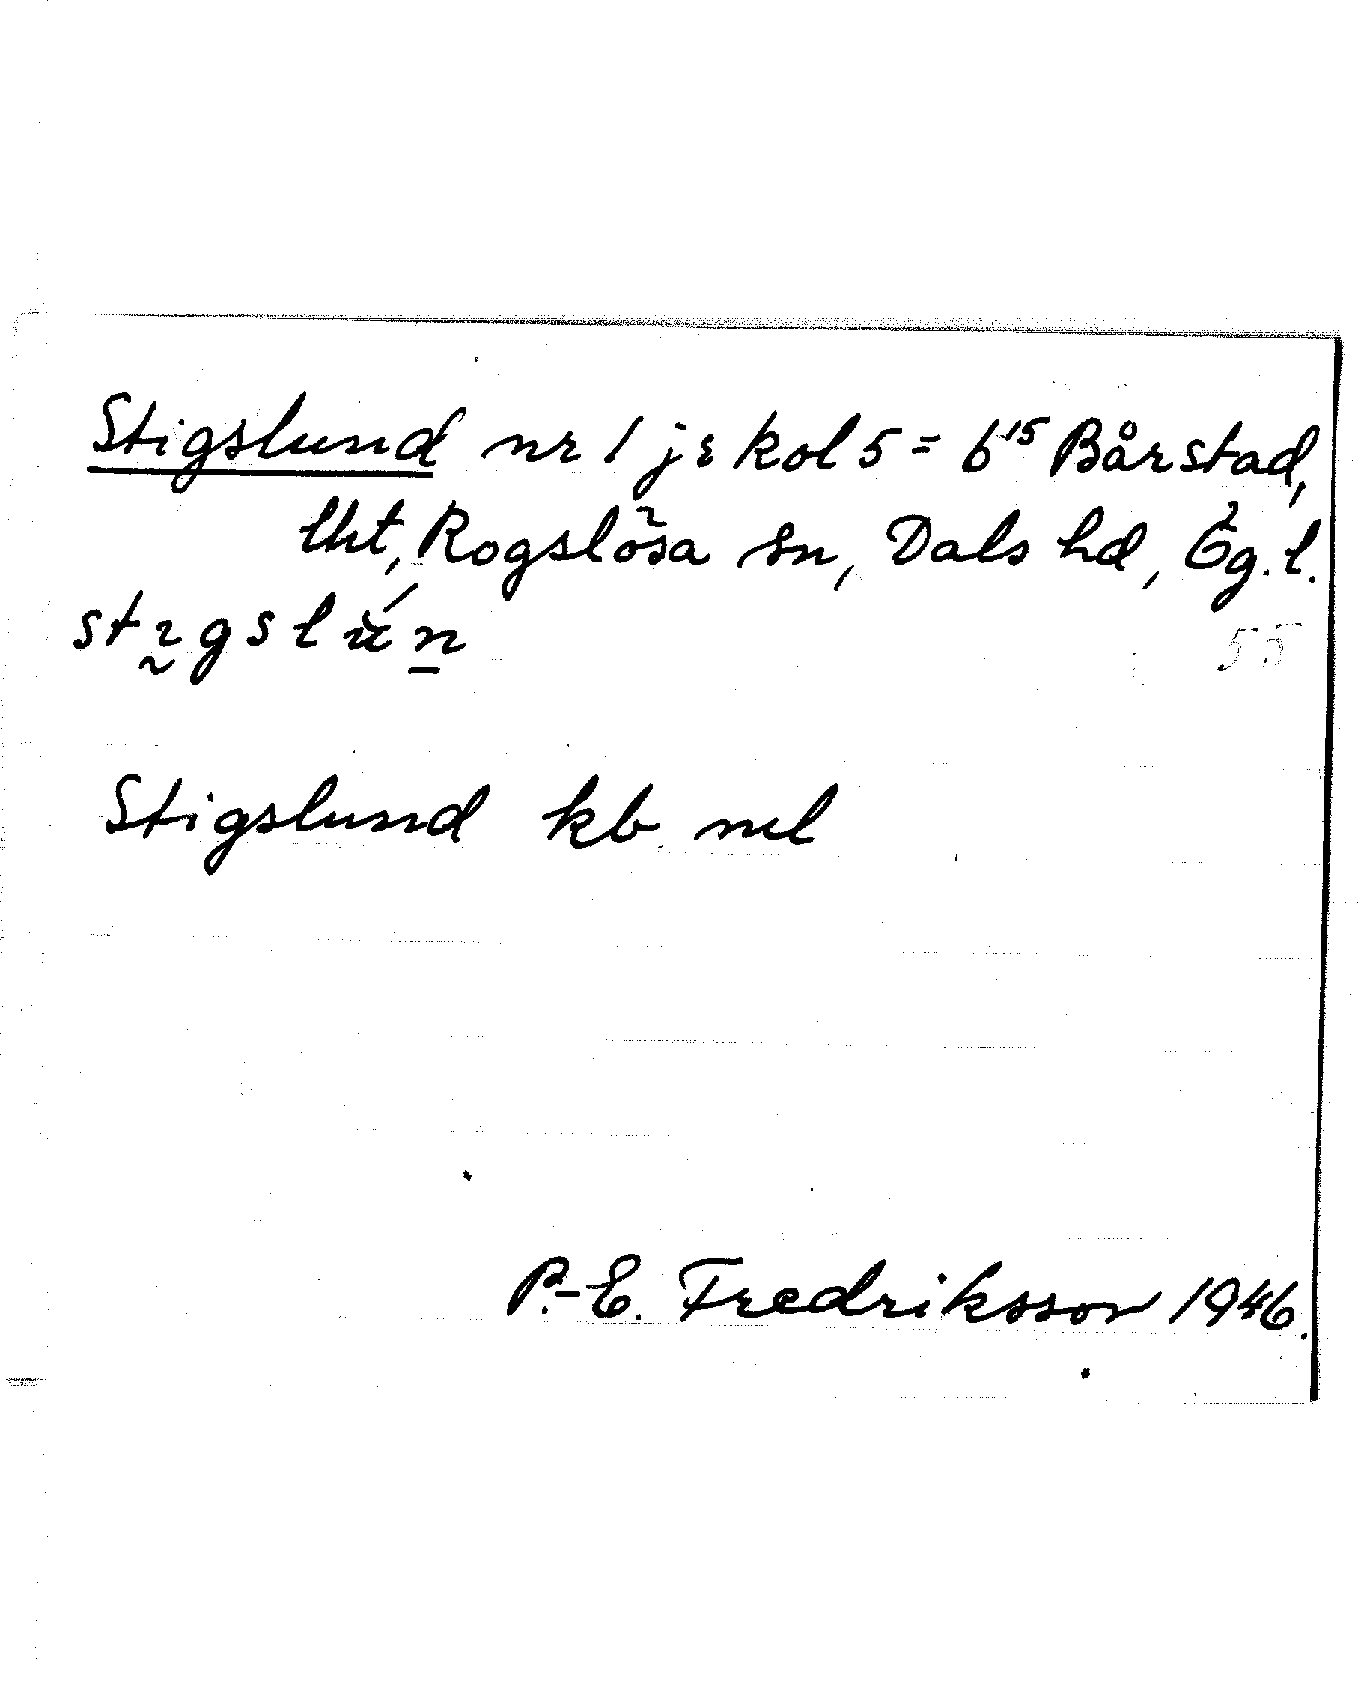 Stigslund nr 1 jr kol 5 = 6¹⁵ Bårstad,
lht, Rogslösa sn, Dals hd, Ög. l.
55
Stigslund kb ml
P.-E. Fredriksson 1946.